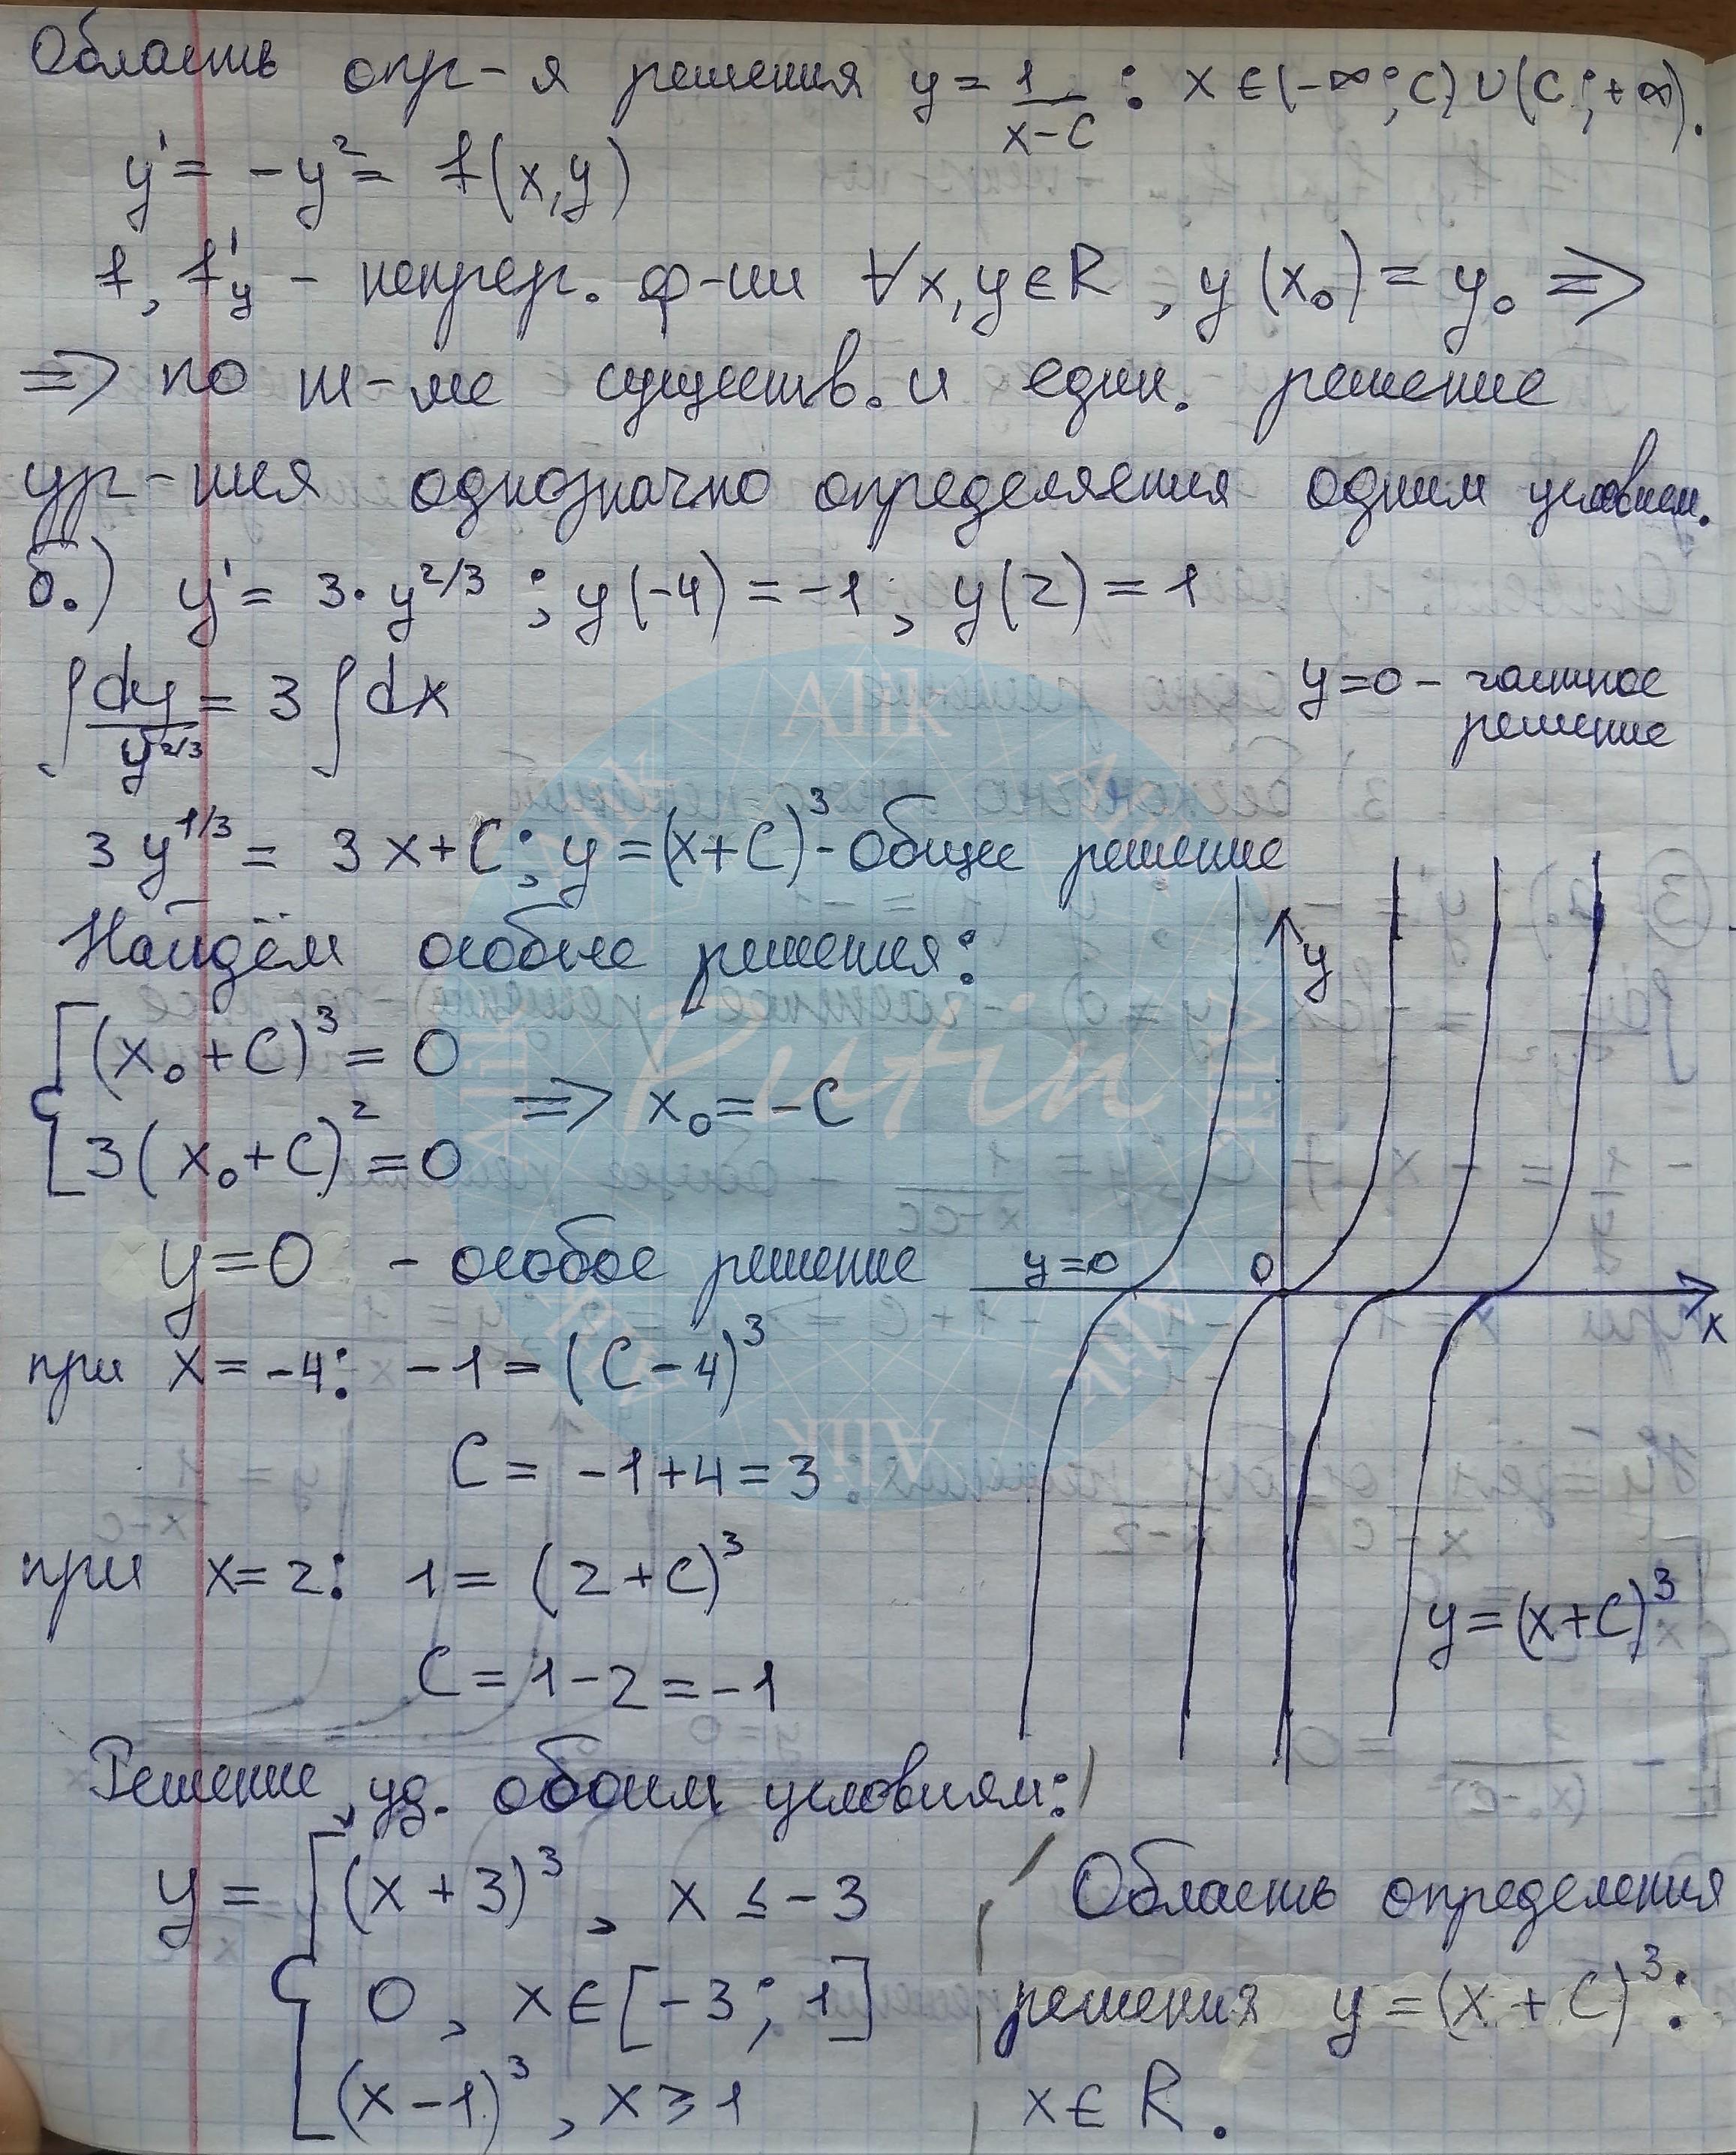 Область опр-я решения y = 1/(x-C) : x ∈ (-∞; C) ∪ (C; +∞).
y' = -y² = f(x,y)
f, f'y - непрер. ф-ии ∀x, y ∈ R, y(x₀) = y₀ ⇒
⇒ по т-ме существ. и един. решение
ур-ния однозначно определяется одним условием.
б.) y' = 3·y^(2/3) ; y(-4) = -1, y(2) = 1
∫ dy/y^(2/3) = 3 ∫ dx
y=0 - частное
решение
3y^(1/3) = 3x + C; y = (x+C)³ - Общее решение
Найдём особые решения:
(x₀+C)³ = 0
3(x₀+C)² = 0
⇒ x₀ = -C
y = 0 - особое решение
при x = -4: -1 = (C-4)³
C = -1+4 = 3
при x = 2: 1 = (2+C)³
C = 1-2 = -1
y
y=0
0
x
y=(x+C)³
Решение, уд. обоим условиям:
y = { (x+3)³, x ≤ -3
0, x ∈ [-3; 1]
(x-1)³, x ≥ 1
Область определения
решения y = (x+C)³:
x ∈ R.
Alik
Alik
Alik
Alik
Alik
Alik
Alik
Alik
Putin